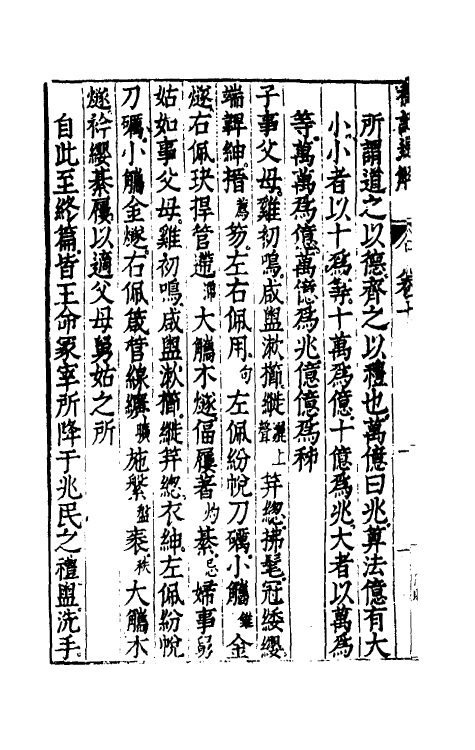 禮記通解 卷十 一
所謂道之以德齊之以禮也萬億曰兆算法億有大
小小者以十為等十萬為億十億為兆大者以萬為
等萬萬為億萬億為兆億億為秭
子事父母雞初鳴咸盥漱櫛縰灑上聲笄總拂髦冠緌纓
端韠紳搢薦笏左右佩用句左佩紛帨刀礪小觿錐金
燧右佩玦捍管遰沸大觿木燧偪屨著灼綦忌婦事舅
姑如事父母雞初鳴咸盥漱櫛縰笄總衣紳左佩紛帨
刀礪小觿金燧右佩箴管線纊曠施縏盤袠秩大觿木
燧衿纓綦屨以適父母舅姑之所
自此至終篇皆王命冢宰所降于兆民之禮盥洗手